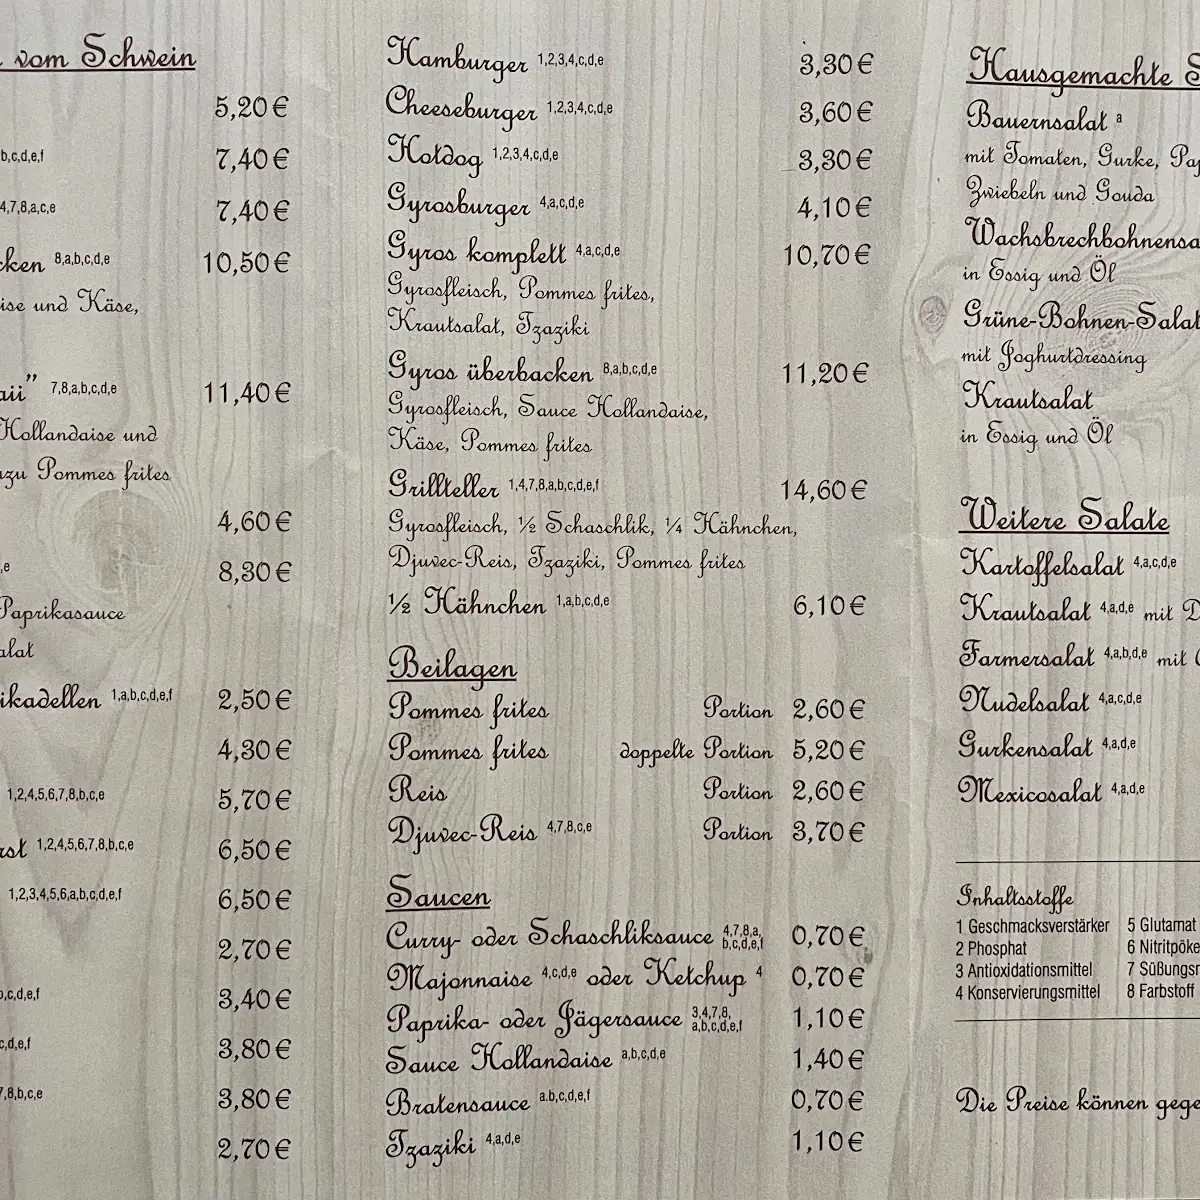 vom Schwein
5,20 €
b,c,d,e,f 7,40 €
4,7,8,a,c,e 7,40 €
cken 8,a,b,c,d,e 10,50 €
ise und Käse,
aii" 7,8,a,b,c,d,e 11,40 €
Hollandaise und
azu Pommes frites
4,60 €
,e 8,30 €
Paprikasauce
alat
ikadellen 1,a,b,c,d,e,f 2,50 €
4,30 €
1,2,4,5,6,7,8,b,c,e 5,70 €
rst 1,2,4,5,6,7,8,b,c,e 6,50 €
1,2,3,4,5,6,a,b,c,d,e,f 6,50 €
2,70 €
b,c,d,e,f 3,40 €
c,d,e,f 3,80 €
7,8,b,c,e 3,80 €
2,70 €
Hamburger 1,2,3,4,c,d,e 3,30 €
Cheeseburger 1,2,3,4,c,d,e 3,60 €
Hotdog 1,2,3,4,c,d,e 3,30 €
Gyrosburger 4,a,c,d,e 4,10 €
Gyros komplett 4,a,c,d,e 10,70 €
Gyrosfleisch, Pommes frites,
Krautsalat, Tzaziki
Gyros überbacken 8,a,b,c,d,e 11,20 €
Gyrosfleisch, Sauce Hollandaise,
Käse, Pommes frites
Grillteller 1,4,7,8,a,b,c,d,e,f 14,60 €
Gyrosfleisch, ½ Schaschlik, ¼ Hähnchen,
Djuvec-Reis, Tzaziki, Pommes frites
½ Hähnchen 1,a,b,c,d,e 6,10 €
Beilagen
Pommes frites Portion 2,60 €
Pommes frites doppelte Portion 5,20 €
Reis Portion 2,60 €
Djuvec-Reis 4,7,8,c,e Portion 3,70 €
Saucen
Curry- oder Schaschliksauce 4,7,8,a, b,c,d,e,f 0,70 €
Majonnaise 4,c,d,e oder Ketchup 4 0,70 €
Paprika- oder Jägersauce 3,4,7,8, a,b,c,d,e,f 1,10 €
Sauce Hollandaise a,b,c,d,e 1,40 €
Bratensauce a.b,c,d,e,f 0,70 €
Tzaziki 4,a,d,e 1,10 €
Hausgemachte S
Bauernsalat a
mit Tomaten, Gurke, Pap
Zwiebeln und Gouda
Wachsbrechbohnensa
in Essig und Öl
Grüne-Bohnen-Salat
mit Joghurtdressing
Krautsalat
in Essig und Öl
Weitere Salate
Kartoffelsalat 4,a,c,d,e
Krautsalat 4,a,d,e mit D
Farmersalat 4,a,b,d,e mit
Nudelsalat 4,a,c,d,e
Gurkensalat 4,a,d,e
Mexicosalat 4,a,d,e
Inhaltsstoffe
1 Geschmacksverstärker 5 Glutamat
2 Phosphat 6 Nitritpöke
3 Antioxidationsmittel 7 Süßungsm
4 Konservierungsmittel 8 Farbstoff
Die Preise können gege